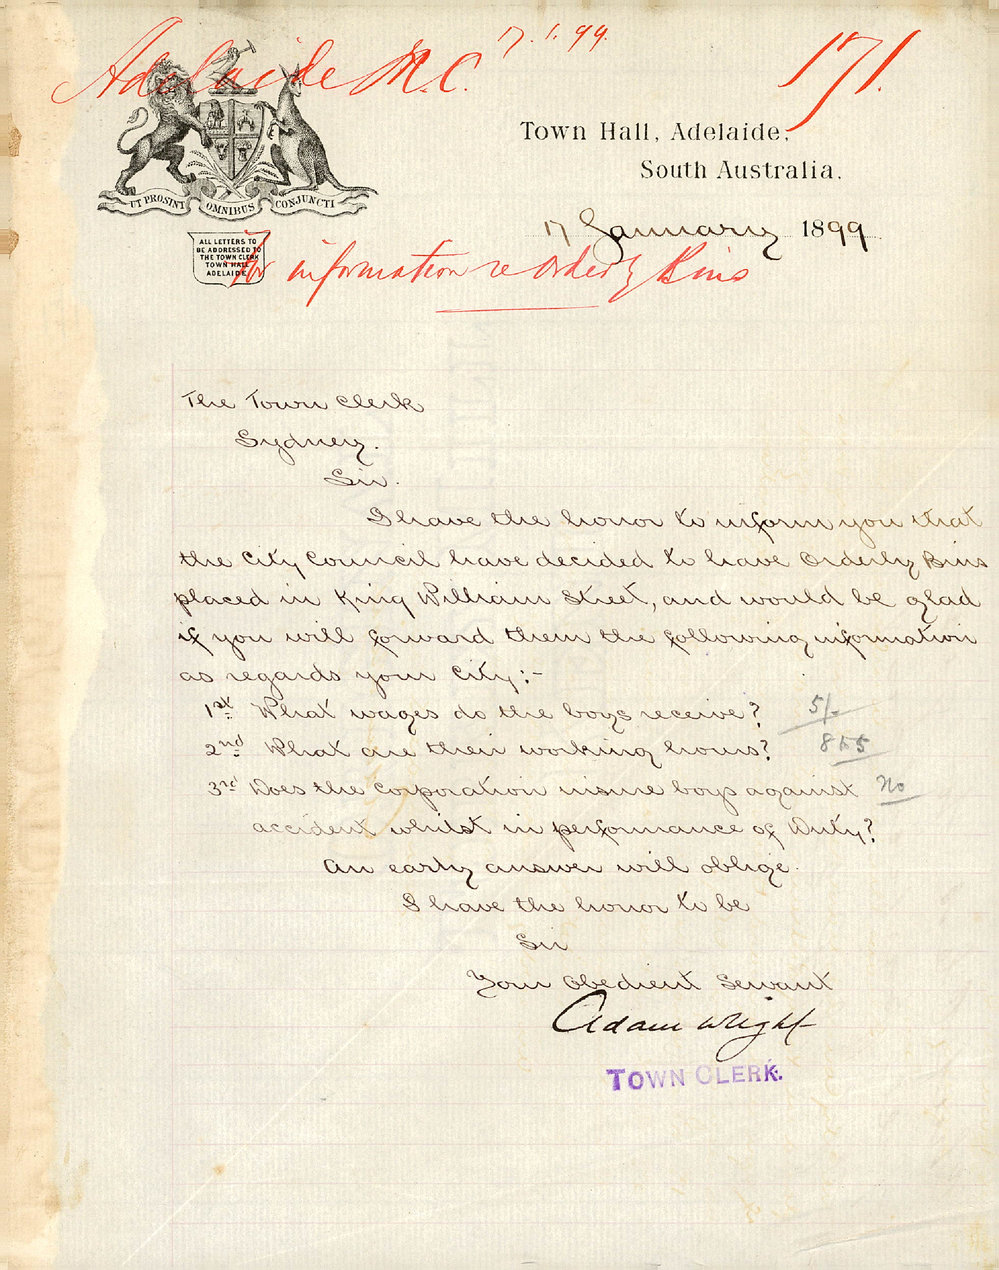 Adelaide M.C. 17.1.99. 171.
UT PROSINT OMNIBUS CONJUNCTI
Town Hall, Adelaide,
South Australia.
17 January 1899
ALL LETTERS TO
BE ADDRESSED TO
THE TOWN CLERK
TOWN HALL
ADELAIDE
For information re Orderly Bins
The Town Clerk
Sydney.
Sir.
I have the honor to inform you that
the City Council have decided to have Orderly Bins
placed in King William Street, and would be glad
if you will forward them the following information
as regards your City:-
1st What wages do the boys receive? 5/-
2nd What are their working hours? 8 to 5
3rd Does the Corporation insure boys against No
accident whilst in performance of Duty?
An early answer will oblige.
I have the honor to be
Sir
Your Obedient Servant
Adam Wright
TOWN CLERK.